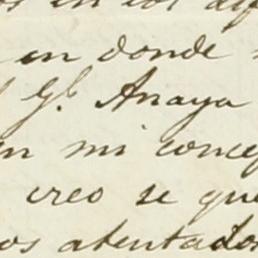 os en los dif
en donde
Gl. Anaya
en mi concep
creo se que
os atentados